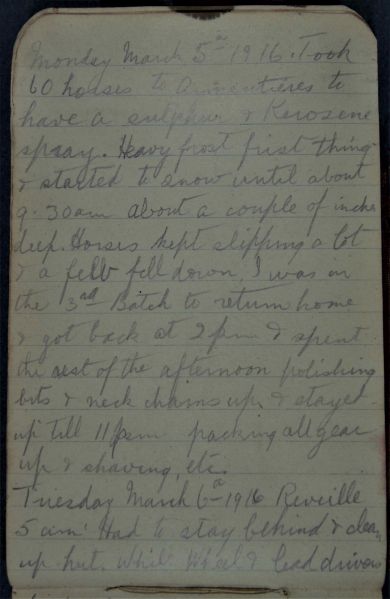 Monday March 5th 1916. Took
60 horses to Armentieres to
have a sulphur & Kerosene
spray. Heavy frost first thing
& started to snow until about
9.30am about a couple of inches
deep. Horses kept slipping a lot
& a few fell down, I was in
the 3rd Batch to return home
& got back at 2pm & spent
the rest of the afternoon polishing
bits & neck chains up & stayed
up till 11pm packing all gear
up & shaving, etc.
Tuesday March 6th 1916 Reveille
5 am. Had to stay behind & clean
up hut. While Wheel & lead drivers